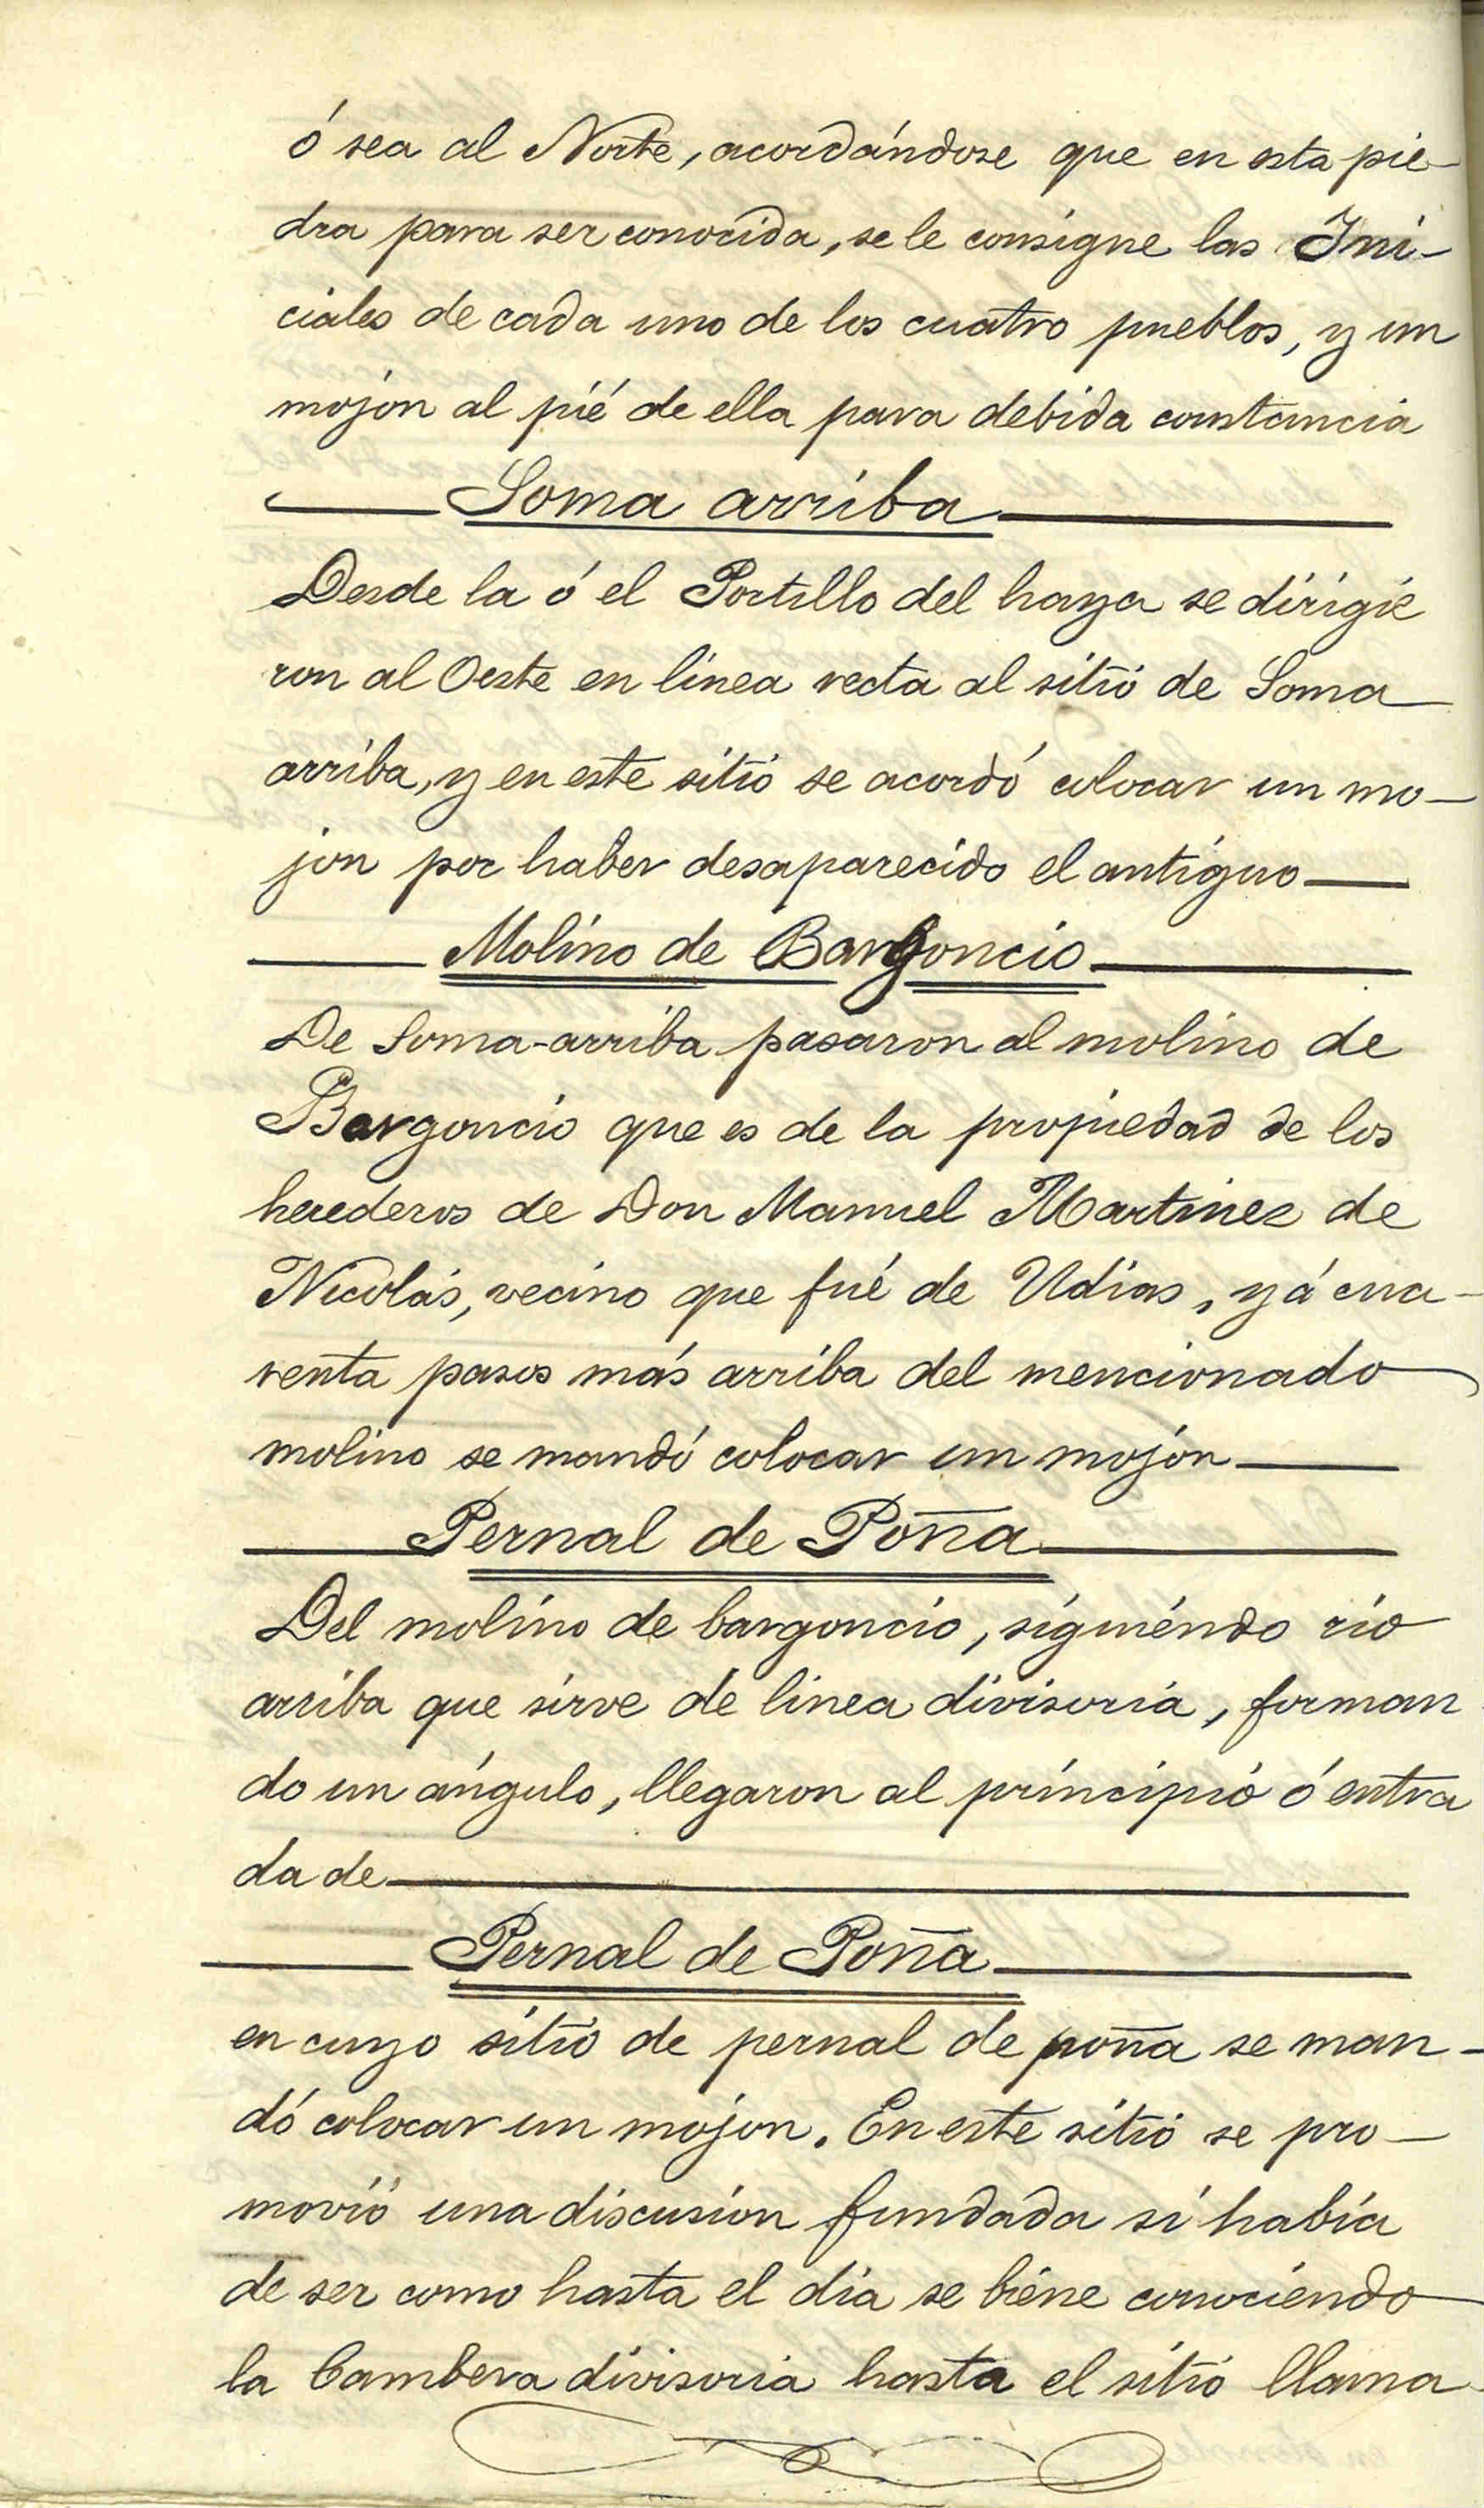 ó sea al Norte, acordándose que en esta pie-
dra para ser conocida, se le consigne las Ini-
ciales de cada uno de los cuatro pueblos, y un
mojon al pié de ella para debida constancia
Soma arriba
Desde la ó el Portillo del haya se dirigie
ron al Oeste en linea recta al sitió de Soma
arriba, y en este sitió se acordó colocar un mo-
jon por haber desaparecido el antíguo
Molino de Bargoncio
De Soma-arriba pasaron al molino de
Bargoncio que es de la propiedad de los
herederos de Don Manuel Martinez de
Nicolás, vecino que fué de Udias, y á cua-
renta pasos más arriba del mencionado
molino se mandó colocar un mojón
Pernal de Poña
Del molino de bargoncio, siguiéndo rio
arriba que sirve de linea divisoria, forman
do un ángulo, llegaron al príncipió ó entra
da de
Pernal de Poña
en cuyo sitió de pernal de poña se man-
dó colocar un mojon. En este sitió se pro-
movió una discusion fundada si había
de ser como hasta el dia se biéne conociéndo
la Cambera divisoria hasta el sitió llama